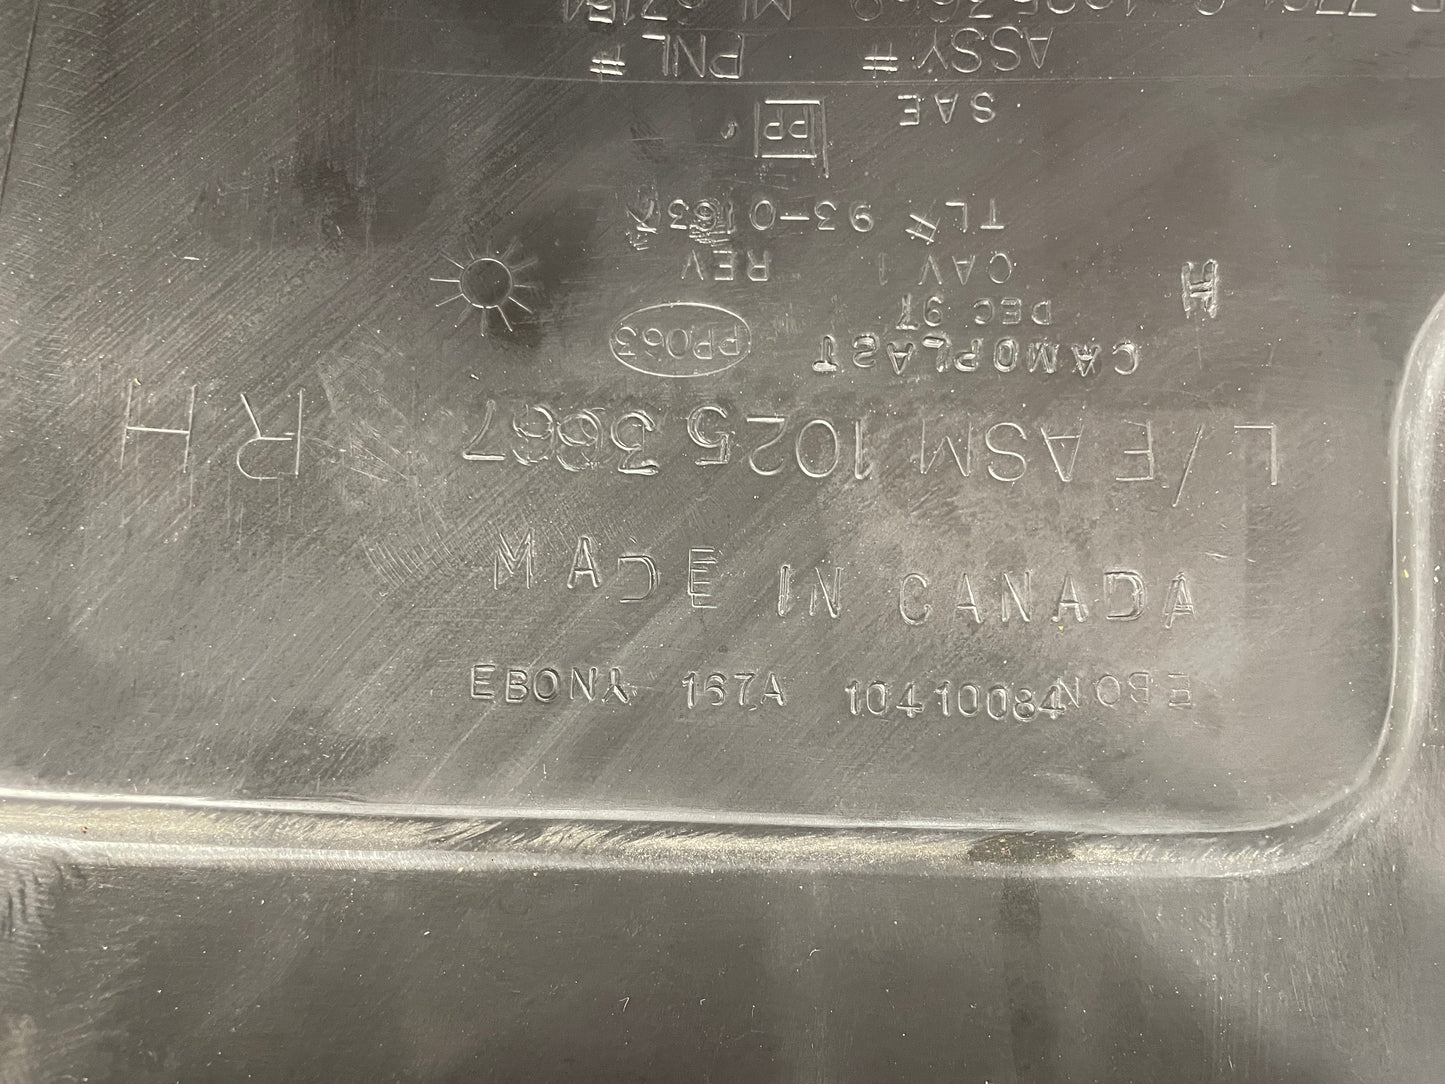 EBONY 167A 10410084
MADE IN CANADA
EBON
L/F ASM 10253667 RH
CAMOPLAST PP063
DEC 97
CAV 1 REV
H
TL# 93-0163
SAE PP
ASSY # PNL #